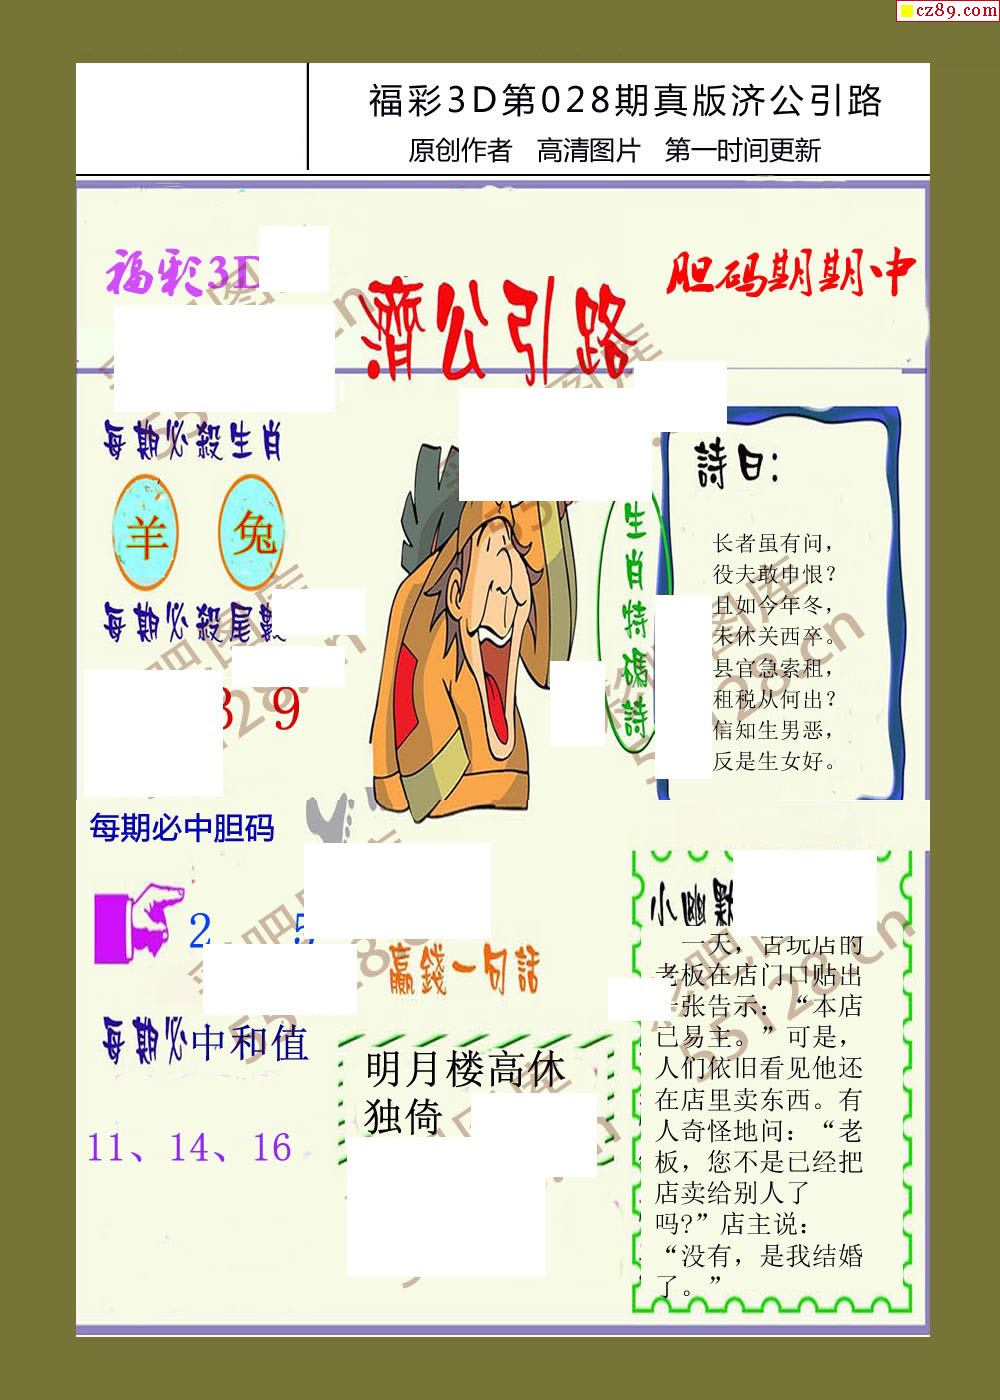 cz89.com
福彩3D第028期真版济公引路
原创作者 高清图片 第一时间更新
福彩3D
胆码期期中
濟公引路
每期必殺生肖
羊 兔
每期必殺尾數
3 9
每期必中胆码
2 5
每期必中和值
11、14、16
生肖特碼詩
詩曰：
长者虽有问，
役夫敢申恨？
且如今年冬，
未休关西卒。
县官急索租，
租税从何出？
信知生男恶，
反是生女好。
赢錢一句話
明月楼高休
独倚
小幽默
一天，古玩店的
老板在店门口贴出
一张告示：“本店
已易主。”可是，
人们依旧看见他还
在店里卖东西。有
人奇怪地问：“老
板，您不是已经把
店卖给别人了
吗?”店主说：
“没有，是我结婚
了。”
55128.cn